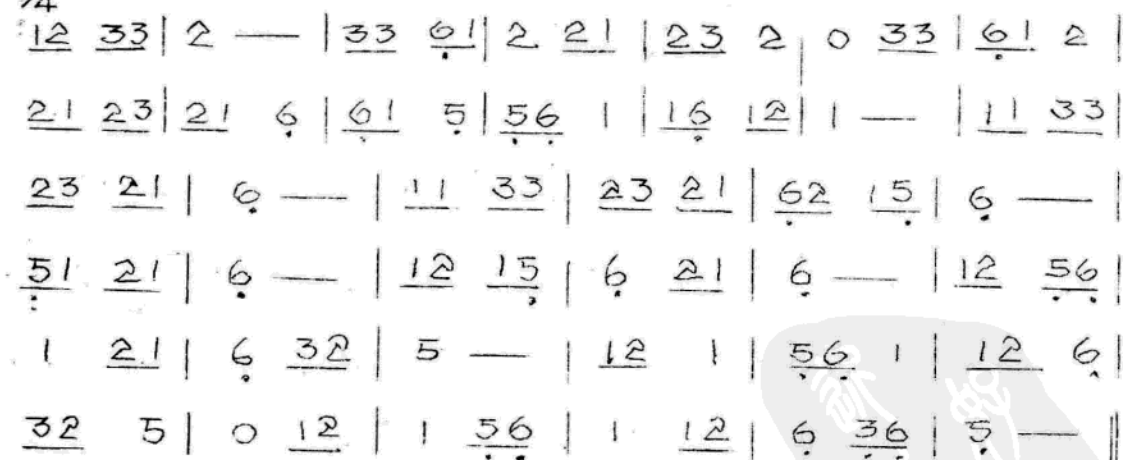 2/4
12 33 | 2 — | 33 61 | 2 21 | 23 2 | 0 33 | 61 2 |
21 23 | 21 6 | 61 5 | 56 1 | 16 12 | 1 — | 11 33 |
23 21 | 6 — | 11 33 | 23 21 | 62 15 | 6 — |
51 21 | 6 — | 12 15 | 6 21 | 6 — | 12 56 |
1 21 | 6 32 | 5 — | 12 1 | 56 1 | 12 6 |
32 5 | 0 12 | 1 56 | 1 12 | 6 36 | 5 — ||